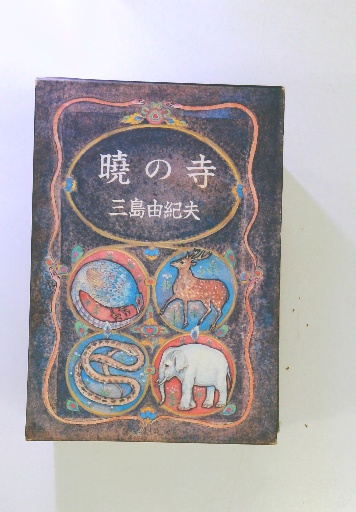 暁の寺
三島由紀夫